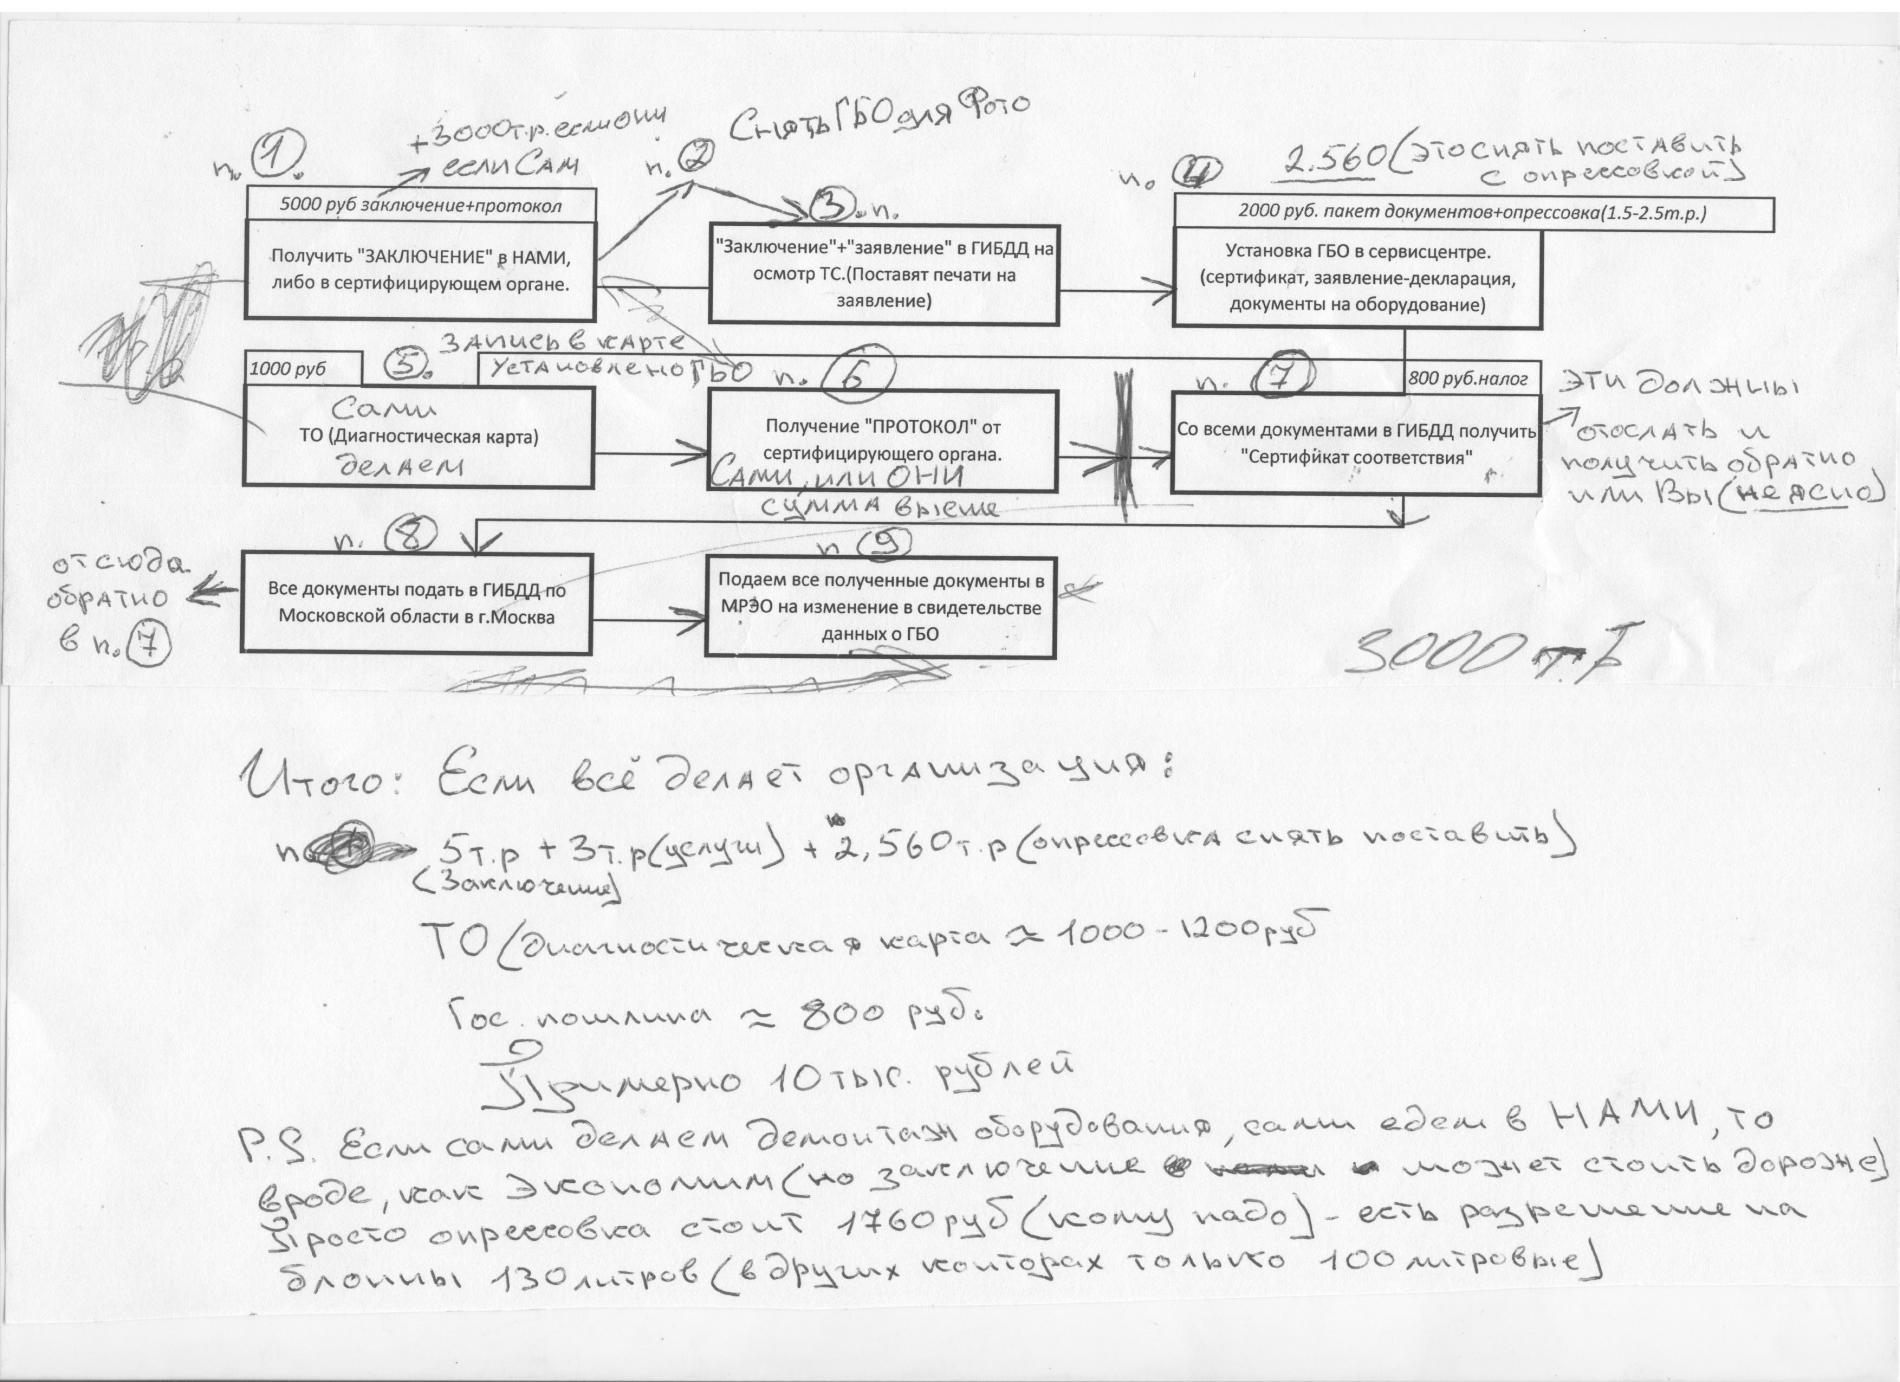 +3000т.р. если они
если САМ
п. 1.
п. 2
Снять ГБО для Фото
2.560 (это снять поставить
с опрессовкой)
п. 4
5000 руб заключение+протокол
Получить "ЗАКЛЮЧЕНИЕ" в НАМИ,
либо в сертифицирующем органе.
3. п.
"Заключение"+"заявление" в ГИБДД на
осмотр ТС.(Поставят печати на
заявление)
2000 руб. пакет документов+опрессовка(1.5-2.5т.р.)
Установка ГБО в сервисцентре.
(сертификат, заявление-декларация,
документы на оборудование)
1000 руб
5.
запись в карте
установлено ГБО
Сами
ТО (Диагностическая карта)
делаем
п. 6
Получение "ПРОТОКОЛ" от
сертифицирующего органа.
Сами, или ОНИ
сумма выше
п. 7
800 руб.налог
Со всеми документами в ГИБДД получить
"Сертификат соответствия"
эти должны
отослать и
получить обратно
или Вы (неясно)
п. 8
Все документы подать в ГИБДД по
Московской области в г.Москва
отсюда
обратно
в п. 7
п 9
Подаем все полученные документы в
МРЭО на изменение в свидетельстве
данных о ГБО
3000
Итого: Если всё делает организация:
п. 5т.р + 3т.р(услуги) + 2,560т.р (опрессовка снять поставить)
(Заключение)
ТО (диагностическая карта ≈ 1000 - 1200руб
Гос. пошлина ≈ 800 руб.
Примерно 10 тыс. рублей
P.S. Если сами делаем демонтаж оборудования, сами едем в НАМИ, то
вроде, как экономим (но заключение может стоить дороже)
Просто опрессовка стоит 1760руб (кому надо) - есть разрешение на
блонны 130литров (в других конторах только 100литровые)